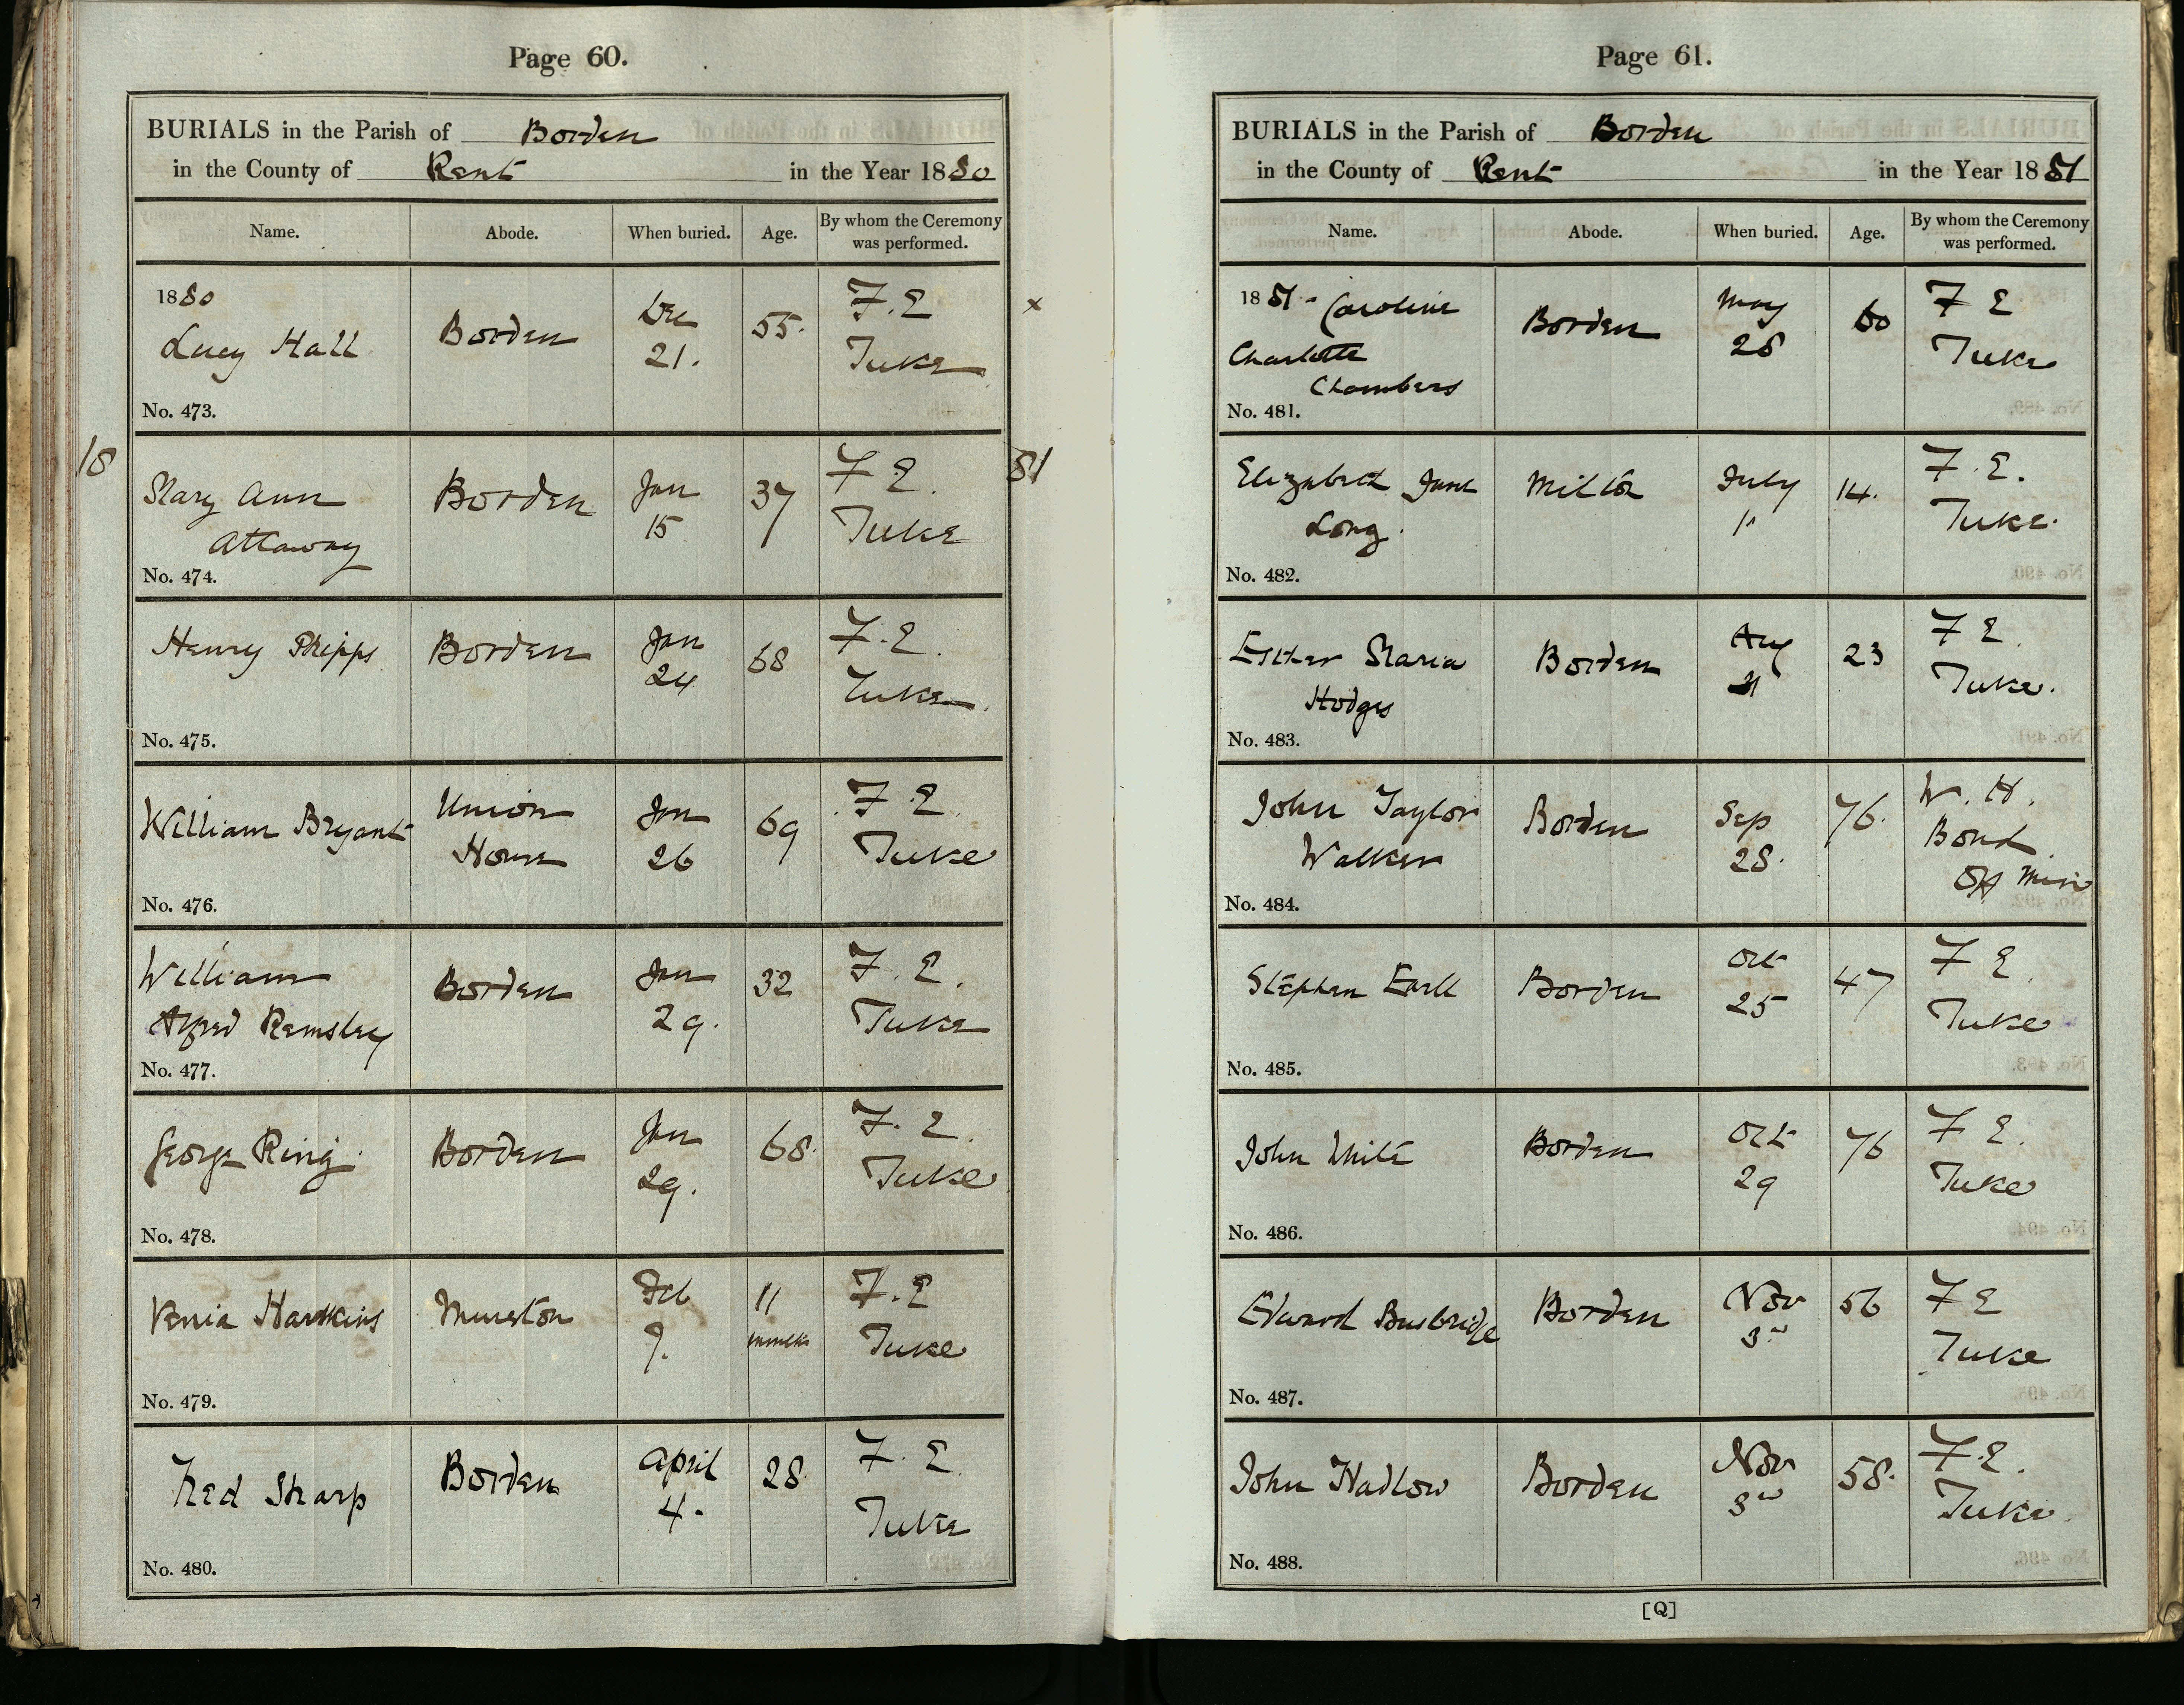 Page 60.
BURIALS in the Parish of Borden
in the County of Kent in the Year 1880
Name. Abode. When buried. Age. By whom the Ceremony was performed.
1880
Lucy Hall Borden Dec 21. 55. F. E Tuke
No. 473.
×
18 81
Mary Ann Attaway Borden Jan 15 37 F E. Tuke
No. 474.
Henry Phipps Borden Jan 24 68 F. E. Tuke
No. 475.
William Bryant Union House Jan 26 69 F. E Tuke
No. 476.
William Alfred Kemsley Borden Jan 29. 32 F. E. Tuke
No. 477.
George King Borden Jan 29. 68. F. E. Tuke
No. 478.
Hawkins Murston Feb 9. 11 months F. E Tuke
No. 479.
Fred Sharp Borden April 4. 28. F. E. Tuke
No. 480.
Page 61.
BURIALS in the Parish of Borden
in the County of Kent in the Year 1881
Name. Abode. When buried. Age. By whom the Ceremony was performed.
1881. Caroline Charlotte Chambers Borden May 28 60 F E Tuke
No. 481.
Elizabeth Jane Long. Milton July 1 14. F. E. Tuke.
No. 482.
Esther Maria Hodges Borden Aug 23 F E. Tuke.
No. 483.
John Taylor Walker Borden Sep 28. 76. W. H. Bond Off Min
No. 484.
Stephen Earll Borden Oct 25 47 F E. Tuke
No. 485.
John White Borden Oct 29 76 F E. Tuke
No. 486.
Edward Busbridge Borden Nov 3 56 F E Tuke
No. 487.
John Hadlow Borden Nov 3 58. F. E. Tuke.
No. 488.
[Q]